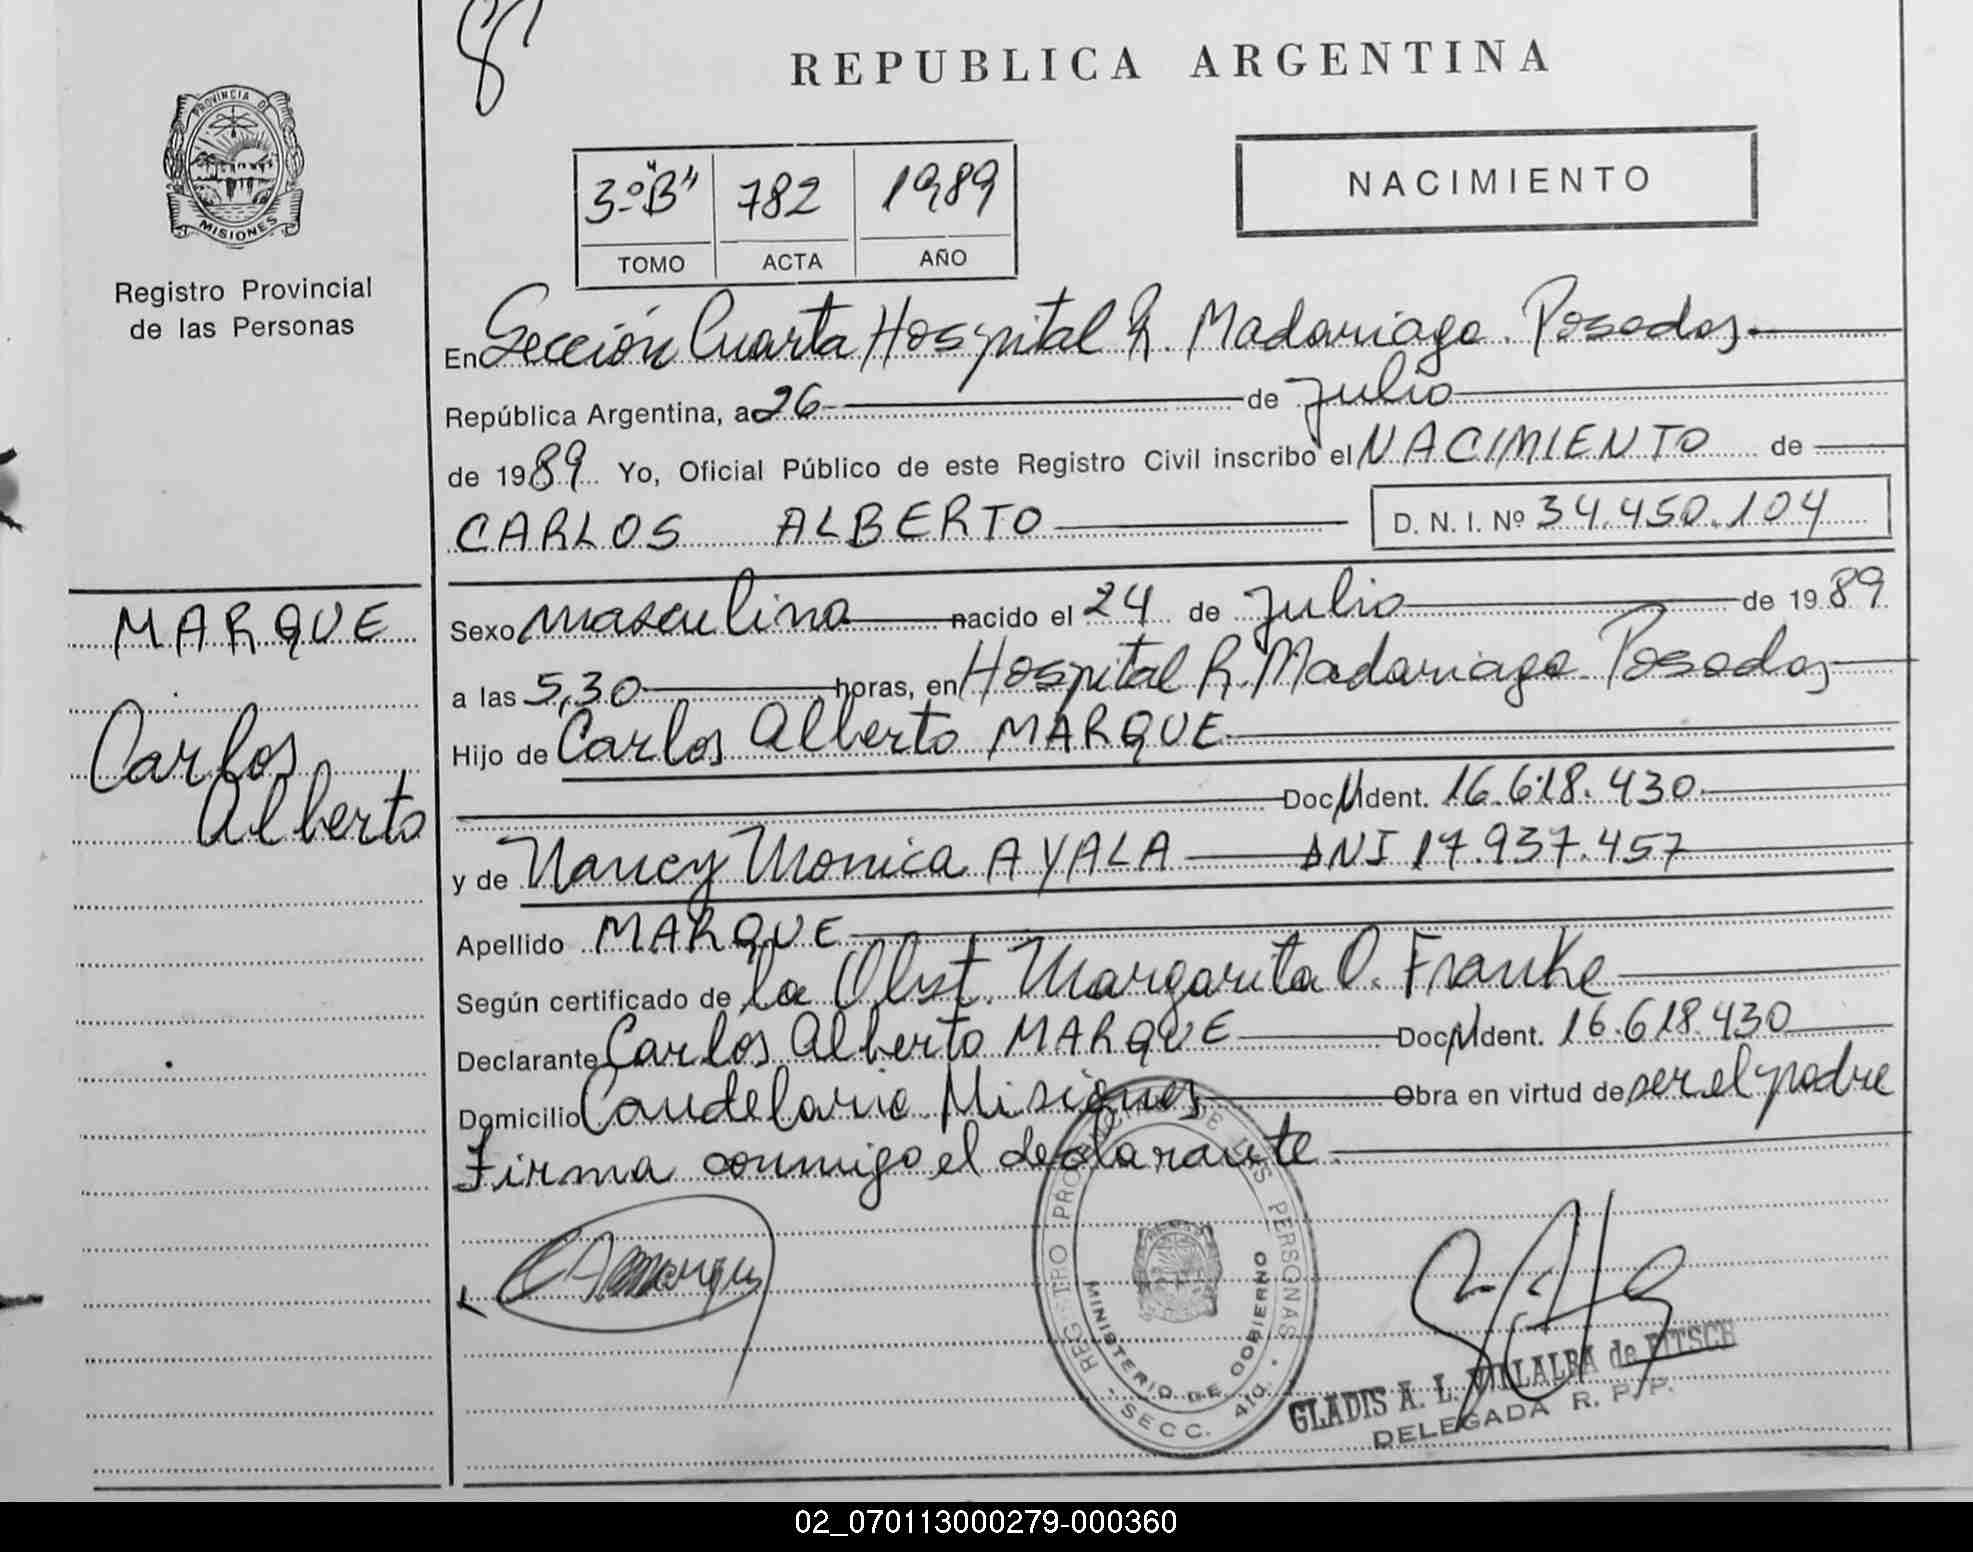 REPUBLICA ARGENTINA
PROVINCIA DE
MISIONES
Registro Provincial
de las Personas
3º "B" 782 1989
TOMO ACTA AÑO
NACIMIENTO
En Sección Cuarta Hospital R. Madariaga. Posadas
República Argentina, a 26 de Julio
de 1989 Yo, Oficial Público de este Registro Civil inscribo el NACIMIENTO de
CARLOS ALBERTO D. N. I. Nº 34.450.104
MARQUE
Carlos
Alberto
Sexo masculino nacido el 24 de Julio de 1989
a las 5,30 horas, en Hospital R. Madariaga. Posadas
Hijo de Carlos Alberto MARQUE
Doc. Ident. 16.618.430
y de Nancy Monica AYALA DNI 17.937.457
Apellido MARQUE
Según certificado de la Obst. Margarita O. Franke
Declarante Carlos Alberto MARQUE Doc. Ident. 16.618.430
Domicilio Candelaria Misiones Obra en virtud de ser el padre
Firma conmigo el declarante.
REGISTRO PROVINCIAL DE LAS PERSONAS
MINISTERIO DE GOBIERNO
SECC. 4ta.
GLADIS A. L. VILLALBA de PITSCH
DELEGADA R. P. P.
02_070113000279-000360